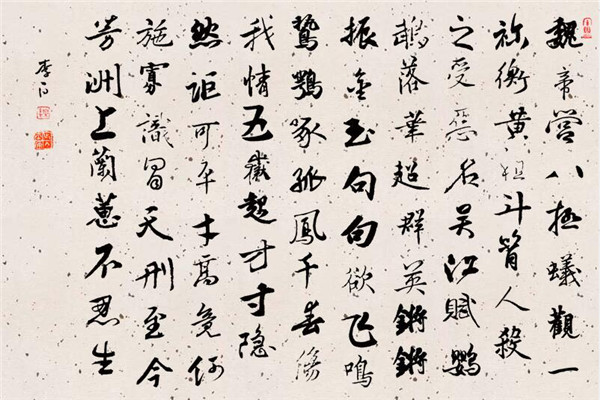 魏帝營八極蟻觀一
祢衡黄祖斗筲人殺
之受惡名吴江賦鸚
鵡落筆超群英鏘鏘
振金玉句句欲飞鳴
鷙鶚啄孤鳳千春傷
我情五嶽起方寸隐
然詎可平才高竟何
施寡識冒天刑至今
芳洲上蘭蕙不忍生